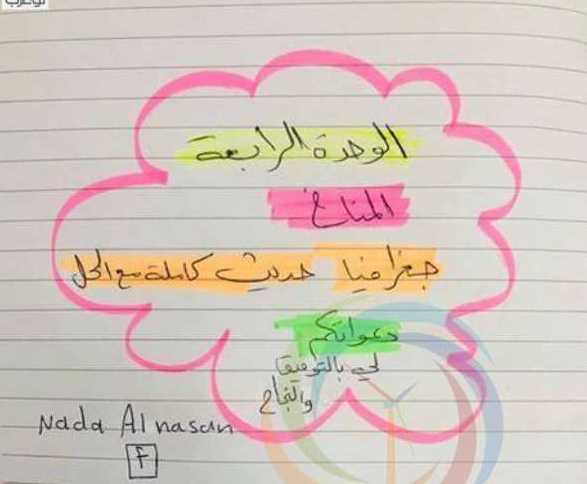 الوحدة الرابعة
المناخ
جغرافيا حديث كاملة مع الحل
دعواتكم
لي بالتوفيق
والنجاح
Nada Alnasan
f